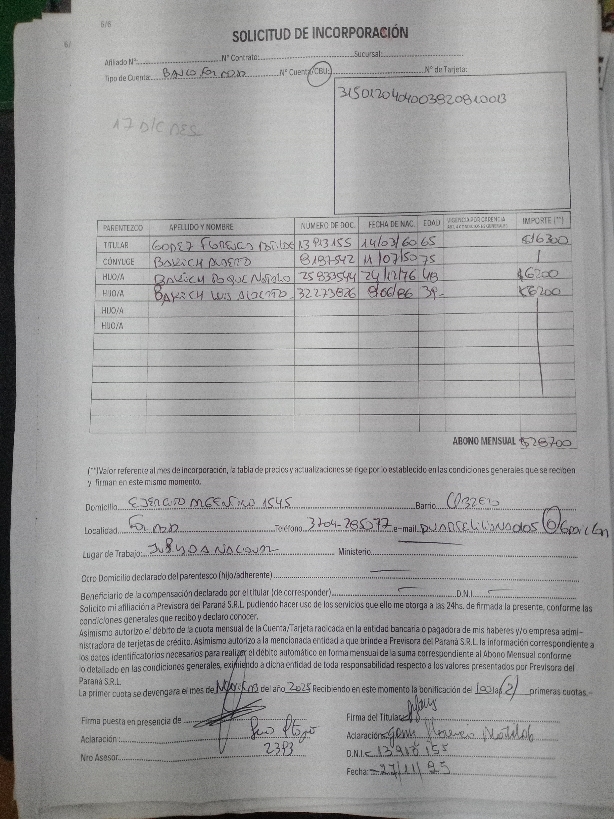 6/6
6/
SOLICITUD DE INCORPORACIÓN
Afiliado N°: N° Contrato: Sucursal:
Tipo de Cuenta: Banco Formosa N° Cuenta/CBU: N° de Tarjeta:
3150120404003820810013
17 DIC DES
PARENTEZCO APELLIDO Y NOMBRE NUMERO DE DOC. FECHA DE NAC. EDAD IMPORTE (**)
TITULAR 14/03/60 65 $16300
CÓNYUGE 8187542 11/07/50 75
HIJO/A 24/12/76 48 $6200
HIJO/A BARICH LUIS ALBERTO 32273826 8/06/86 39 $6200
HIJO/A
HIJO/A
ABONO MENSUAL $28700
(**)Valor referente al mes de incorporación, la tabla de precios y actualizaciones se rige por lo establecido en las condiciones generales que se reciben
y firman en este mismo momento.
Domicilio 1545 Barrio
Localidad Formosa Teléfono 3704-285077 e-mail
Lugar de Trabajo: Ministerio
Otro Domicilio declarado del parentesco (hijo/adherente)
Beneficiario de la compensación declarado por el titular (de corresponder) D.N.I.
Solicito mi afiliación a Previsora del Paraná S.R.L. pudiendo hacer uso de los servicios que ello me otorga a las 24hs. de firmada la presente, conforme las
condiciones generales que recibo y declaro conocer.
Asimismo autorizo el débito de la cuota mensual de la Cuenta/Tarjeta radicada en la entidad bancaria o pagadora de mis haberes y/o empresa admi-
nistradora de terjetas de crédito. Asimismo autorizo a la mencionada entidad a que brinde a Previsora del Paraná S.R.L. la información correspondiente a
los datos identificatorios necesarios para realizar el débito automático en forma mensual de la suma correspondiente al Abono Mensual conforme
lo detallado en las condiciones generales, eximiendo a dicha entidad de toda responsabilidad respecto a los valores presentados por Previsora del
Paraná S.R.L.
La primer cuota se devengara el mes de del año 2025 Recibiendo en este momento la bonificación del (2) primeras cuotas.-
Firma puesta en presencia de Firma del Titular
Aclaración: Aclaración:
Nro Asesor 2393 D.N.I.: 13918155
Fecha: 27/11/25